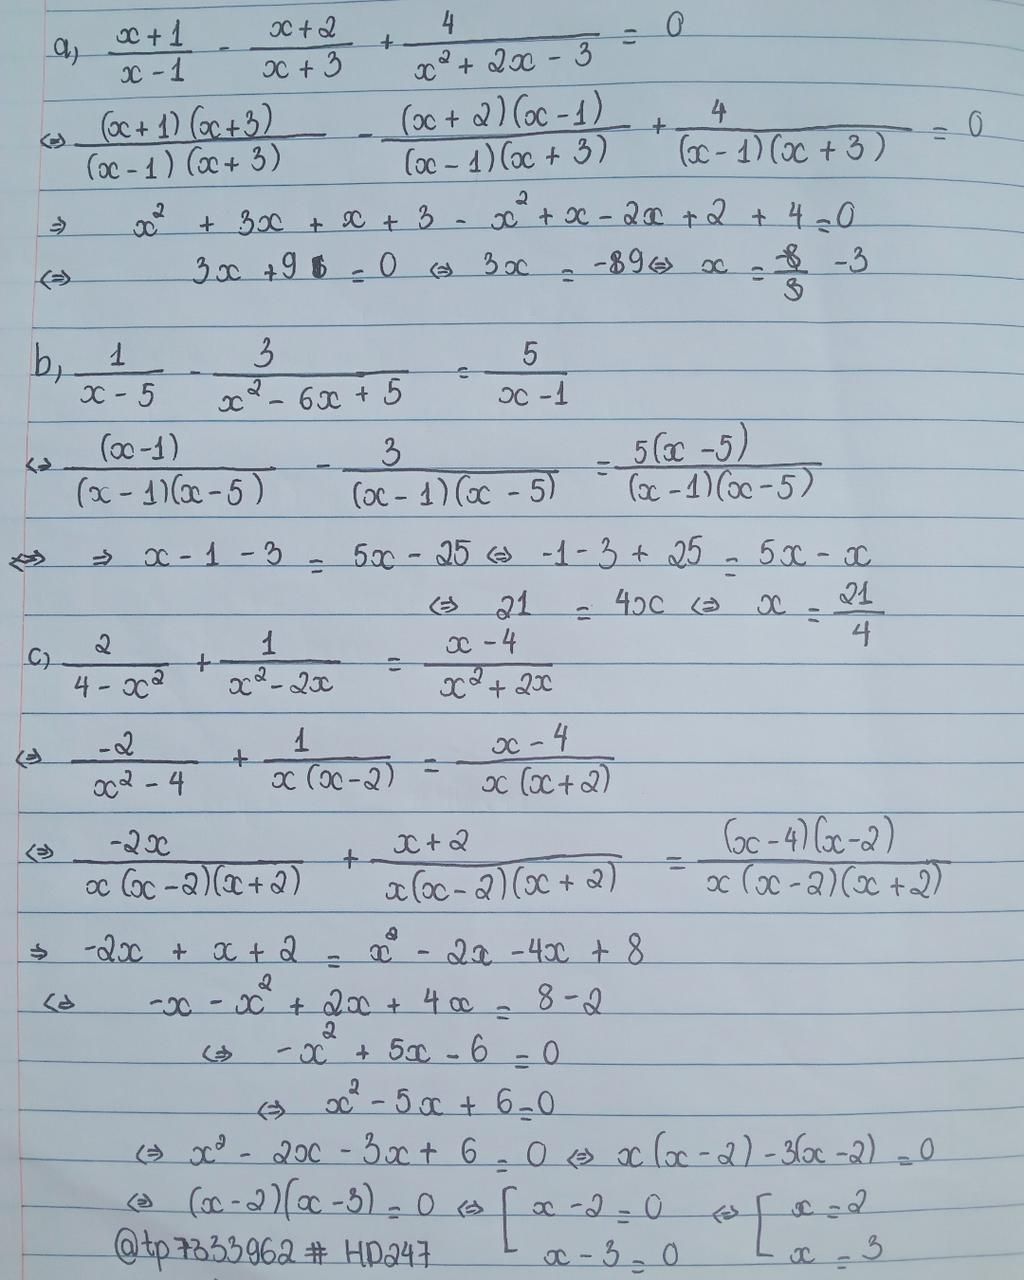 a, (x+1)/(x-1) - (x+2)/(x+3) + 4/(x² + 2x - 3) = 0
⇔ (x+1)(x+3)/(x-1)(x+3) - (x+2)(x-1)/(x-1)(x+3) + 4/(x-1)(x+3) = 0
⇒ x² + 3x + x + 3 - x² + x - 2x + 2 + 4 = 0
⇔ 3x + 9 = 0 ⇔ 3x = -9 ⇔ x = -3
b, 1/(x-5) - 3/(x² - 6x + 5) = 5/(x-1)
⇔ (x-1)/(x-1)(x-5) - 3/(x-1)(x-5) = 5(x-5)/(x-1)(x-5)
⇒ x - 1 - 3 = 5x - 25 ⇔ -1 - 3 + 25 = 5x - x
⇔ 21 = 4x ⇔ x = 21/4
c, 2/(4 - x²) + 1/(x² - 2x) = (x-4)/(x² + 2x)
⇔ -2/(x² - 4) + 1/x(x-2) = (x-4)/x(x+2)
⇔ -2x/x(x-2)(x+2) + (x+2)/x(x-2)(x+2) = (x-4)(x-2)/x(x-2)(x+2)
⇒ -2x + x + 2 = x² - 2x - 4x + 8
⇔ -x - x² + 2x + 4x = 8 - 2
⇔ -x² + 5x - 6 = 0
⇔ x² - 5x + 6 = 0
⇔ x² - 2x - 3x + 6 = 0 ⇔ x(x-2) - 3(x-2) = 0
⇔ (x-2)(x-3) = 0 ⇔ [ x - 2 = 0 ⇔ [ x = 2
@tp7333962 # HD247 x - 3 = 0 x = 3